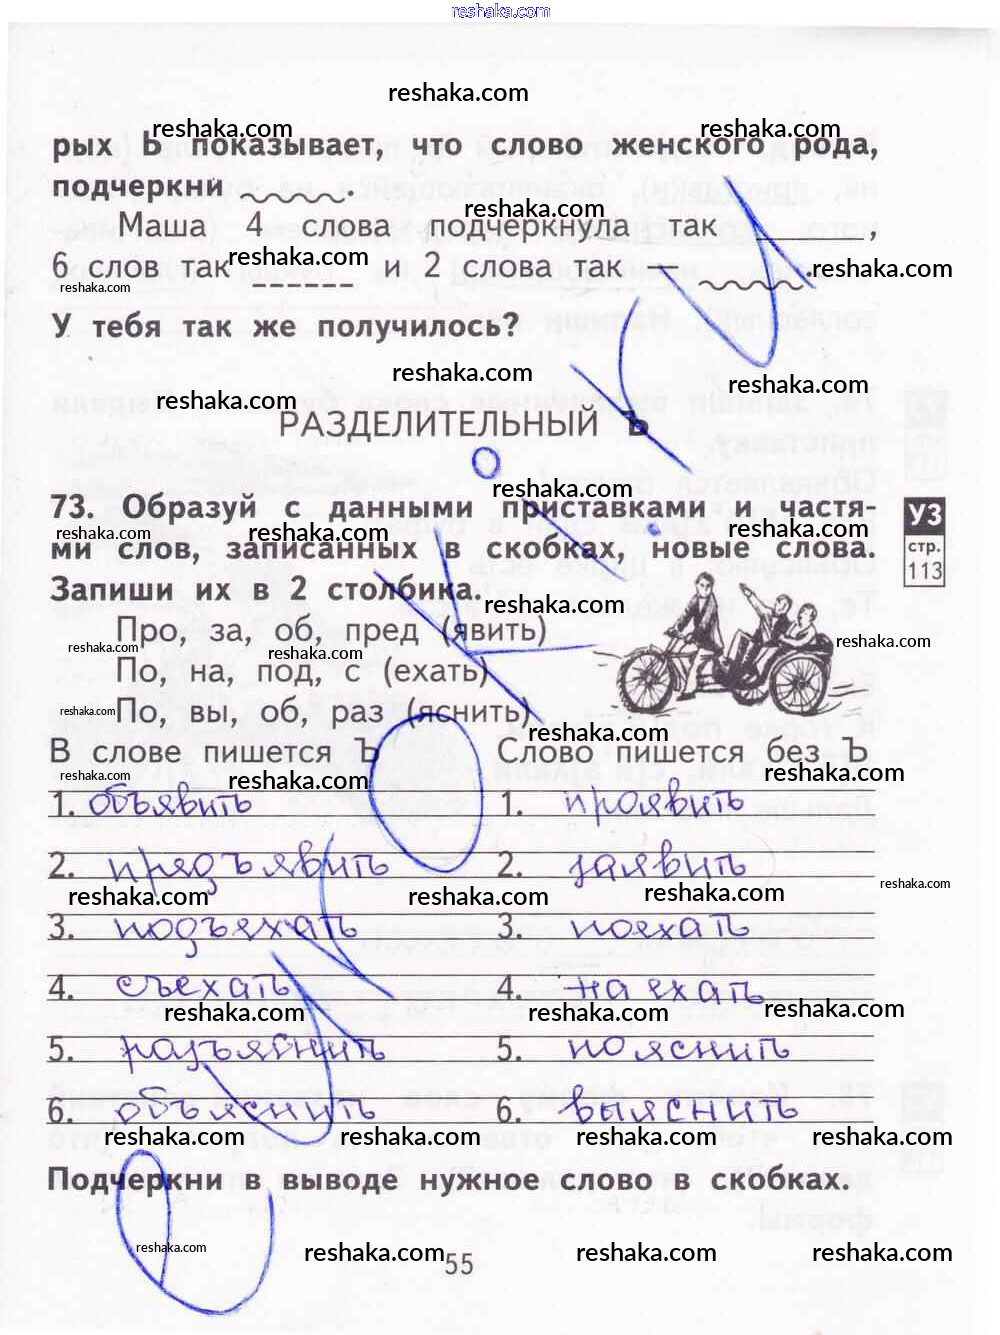 reshaka.com
reshaka.com
reshaka.com reshaka.com
рых Ь показывает, что слово женского рода,
подчеркни .
reshaka.com
Маша 4 слова подчеркнула так ,
6 слов так reshaka.com и 2 слова так . reshaka.com
reshaka.com
У тебя так же получилось?
reshaka.com
reshaka.com reshaka.com
РАЗДЕЛИТЕЛЬНЫЙ Ъ
reshaka.com
73. Образуй с данными приставками и частя-
reshaka.com reshaka.com reshaka.com
ми слов, записанных в скобках, новые слова.
УЗ
стр.
113
Запиши их в 2 столбика.
reshaka.com
Про, за, об, пред (явить)
reshaka.com reshaka.com reshaka.com
По, на, под, с (ехать)
reshaka.com
По, вы, об, раз (яснить)
reshaka.com
В слове пишется Ъ Слово пишется без Ъ
reshaka.com reshaka.com reshaka.com
1. объявить 1. проявить
2. предъявить 2. заявить
reshaka.com reshaka.com reshaka.com reshaka.com
3. подъехать 3. поехать
4. съехать 4. на ехать
reshaka.com reshaka.com reshaka.com
5. разъяснить 5. пояснить
6. объяснить 6. выяснить
reshaka.com reshaka.com reshaka.com reshaka.com
Подчеркни в выводе нужное слово в скобках.
reshaka.com reshaka.com reshaka.com reshaka.com
55